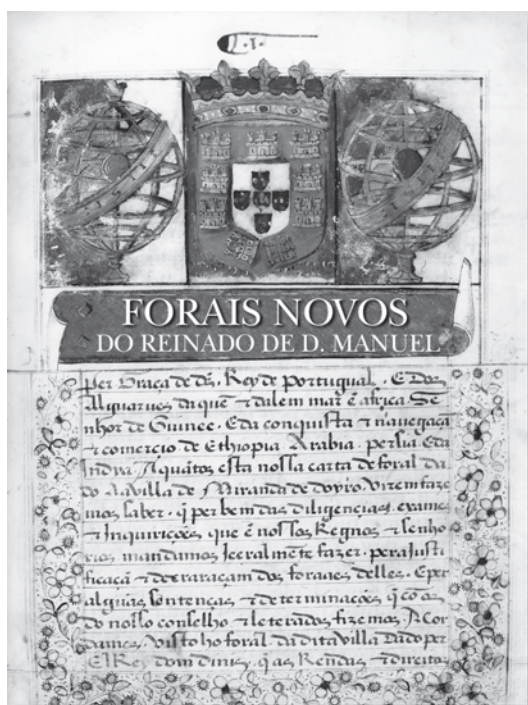 .I.
FORAIS NOVOS
DO REINADO DE D. MANUEL
per Graça de ds. Rey de portugual. E dos
Alguarues daquē ⁊ dalem mar ē africa. Se
nhor de Guinee. E da conquista ⁊ nauegaçā
⁊ comercio de Ethiopia Arabia. persia E da
Jndia. A quātos esta nossa carta de foral da
do aa villa de Miranda de doyro virem faze
mos saber. q̄ per bem das diligencias. exames
⁊ Inquirições que ē nossos Regnos ⁊ senho
rios mandamos geeralmēte fazer. pera justi
ficaçā ⁊ decraraçam dos foraaes delles. E per
alguūas sentenças ⁊ determinações q̄ cō os
do nosso conselho ⁊ leterados fizemos. Acor
damos. visto ho foral da dita villa dado per
El Rey dom dinis. q̄ as Rendas ⁊ direitos